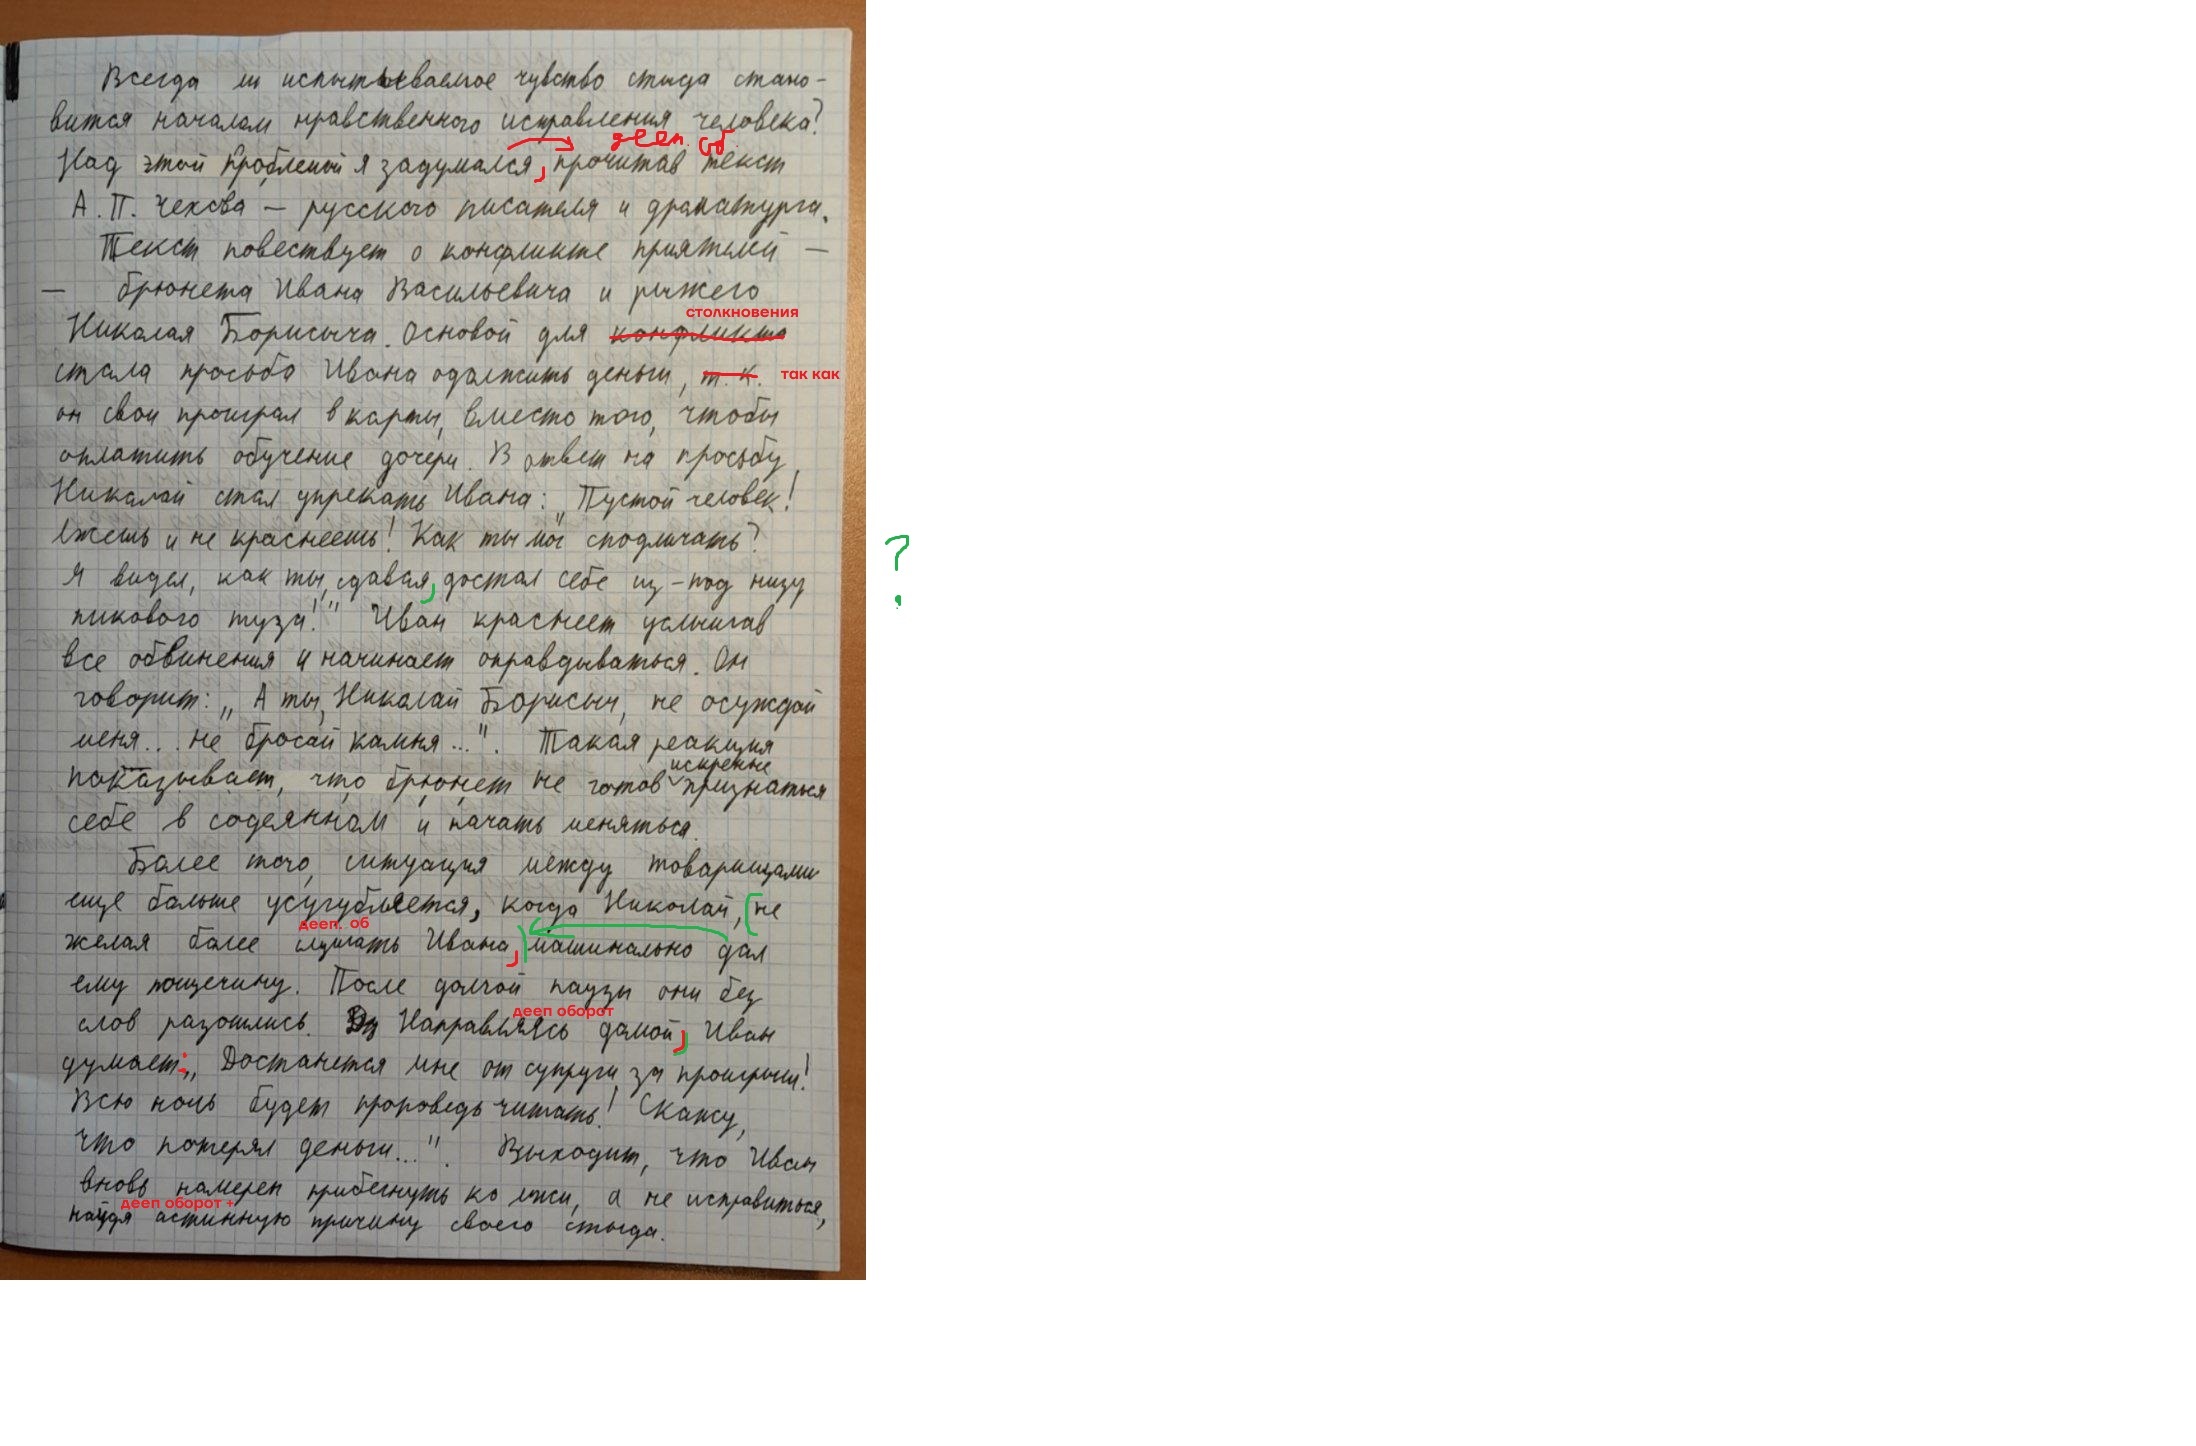 Всегда ли испытываемое чувство стыда стано-
вится началом нравственного исправления человека?
дееп. об
Над этой проблемой я задумался, прочитав текст
А. П. Чехова – русского писателя и драматурга.
Текст повествует о конфликте приятелей –
– брюнета Ивана Васильевича и рыжего
столкновения
Николая Борисыча. Основой для конфликта
стала просьба Ивана одолжить деньги, т. к. так как
он свои проиграл в карты, вместо того, чтобы
оплатить обучение дочери. В ответ на просьбу,
Николай стал упрекать Ивана: „Пустой человек!
Лжешь и не краснеешь! Как ты мог сподличать?
?
Я видел, как ты, сдавая, достал себе из-под низу
пикового туза!" Иван краснеет услышав
все обвинения и начинает оправдываться. Он
говорит: „А ты, Николай Борисыч, не осуждай
меня... не бросай камня...". Такая реакция
искренне
показывает, что брюнет не готов признаться
себе в содеянном и начать меняться.
Более того, ситуация между товарищами
еще больше усугубляется, когда Николай, не
дееп. об
желая более слушать Ивана, машинально дал
ему пощечину. После долгой паузы они без
дееп оборот
слов разошлись. Направляясь домой, Иван
думает: „Достанется мне от супруги за проигрыш!
Всю ночь будет проповедь читать! Скажу,
что потерял деньги...". Выходит, что Иван
вновь намерен прибегнуть ко лжи, а не исправиться,
дееп оборот +
найдя астинную причину своего стыда.